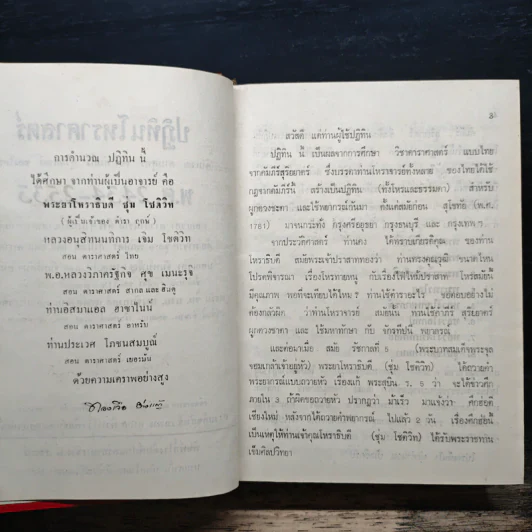 การคำนวณ ปฏิทิน นี้
ได้ศึกษา จากท่านผู้เป็นอาจารย์ คือ
พระยาโหราธิบดี ชุ่ม โชติวิท
( ผู้เริ่มเจ้าของ ตำรา ฤกษ์ )
หลวงอนุสิทนนทิการ เจิม โชติวิท
สอน ดาราศาสตร์ ไทย
พ.อ.หลวงวิภาครัฐกิจ ศุข เมนะรุจิ
สอน ดาราศาสตร์ สากล และ ฮินดู
ท่านอิสมาแอล อาซารีนน์
สอน ดาราศาสตร์ อาหรับ
ท่านประเวศ โภชนสมบูรณ์
สอน ดาราศาสตร์ เยอรมัน
ด้วยความเคารพอย่างสูง
ปฏิทินโหราศาสตร์
3
สวัสดี แด่ท่านผู้ใช้ปฏิทิน
ปฏิทิน นี้ เป็นผลจากการศึกษา วิชาดาราศาสตร์ แบบไทย
จากคัมภีร์สุริยยาตร์ ซึ่งบรรดาท่านโหราจารย์ทั้งหลาย ของไทยได้ใช้
กฎจากคัมภีร์นี้ สร้างเป็นปฏิทิน (ทั้งโหรและธรรมดา) สำหรับ
ผูกดวงชะตา และใช้พยากรณ์กันมา ตั้งแต่สมัยก่อน สุโขทัย (พ.ศ.
1781) มาจนกระทั่ง กรุงศรีอยุธยา กรุงธนบุรี และ กรุงเทพ ฯ
จากประวัติศาสตร์ ท่านคง ได้ทราบเกียรติคุณ ของท่าน
โหราธิบดี สมัยพระเจ้าปราสาททองว่า ท่านทรงคุณวุฒิ ขนาดไหน
โปรดพิจารณา เรื่องโหรทายหนู กับเรื่องไฟไหม้ปราสาท โหรสมัยนี้
มีคุณภาพ พอที่จะเทียบได้ไหม ? ท่านใช้ตำราอะไร ขอตอบอย่างไม่
ต้องกลัวผิด ว่าท่านโหราจารย์ สมัยนั้น ท่านใช้คัมภีร์ สุริยยาตร์
ผูกดวงชาตา และ ใช้มหาทักษา กับ จักรทีปนี พยากรณ์
และต่อมาเมื่อ สมัย รัชกาลที่ 5 (พระบาทสมเด็จพระจุล
จอมเกล้าเจ้าอยู่หัว) พระยาโหราธิบดี (ชุ่ม โชติวิท) ได้ถวายคำ
พระยากรณ์แบบถวายหัว เรื่องแก้ พระสุบิน ร. 5 ว่า จะได้ข่าวศึก
ภายใน 3 ถ้าผิดขอถวายหัว ปรากฏว่า ม้าเร็ว มาแจ้งว่า ศึกฮ่อตี
เชียงใหม่ หลังจากได้ถวายคำพยากรณ์ ไปแล้ว 2 วัน เรื่องศึกฮ่อนี้
เป็นเหตุให้ท่านเจ้าคุณโหราธิบดี (ชุ่ม โชติวิท) ได้รับพระราชทาน
เข็มศิลปวิทยา